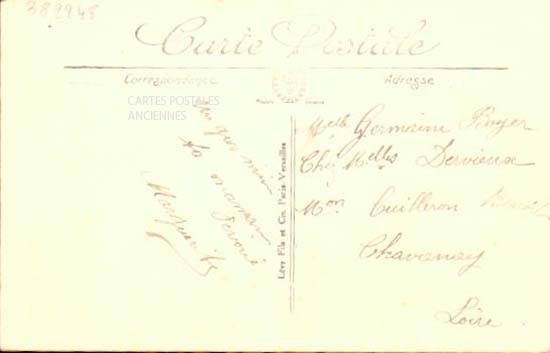 382248
Carte Postale
Correspondance
Adresse
CARTES POSTALES
ANCIENNES
Un gros mimi
ta maman
Marguerite
Lévy Fils et Cie, Paris-Versailles
Melle Germaine Royer
Chez Melles Dervieux
Mon Cuilleron
Chavanay
Loire